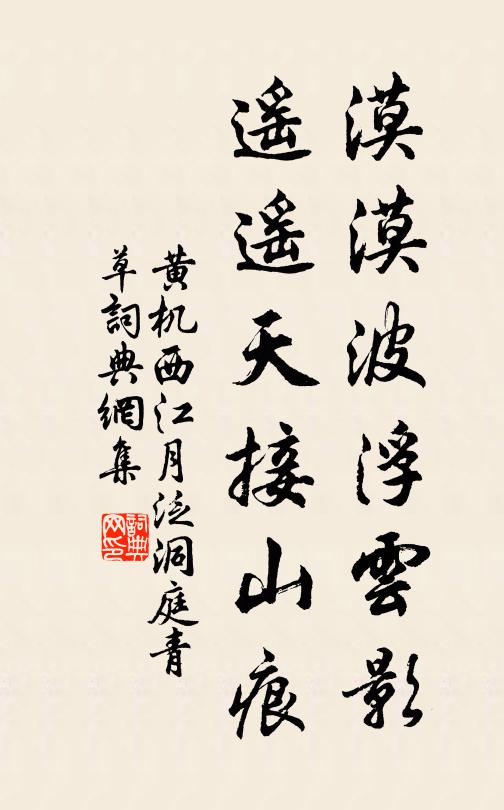 漠漠波浮雲影
遥遥天接山痕
黄机西江月泛洞庭青
草詞典網集
詞典
网印